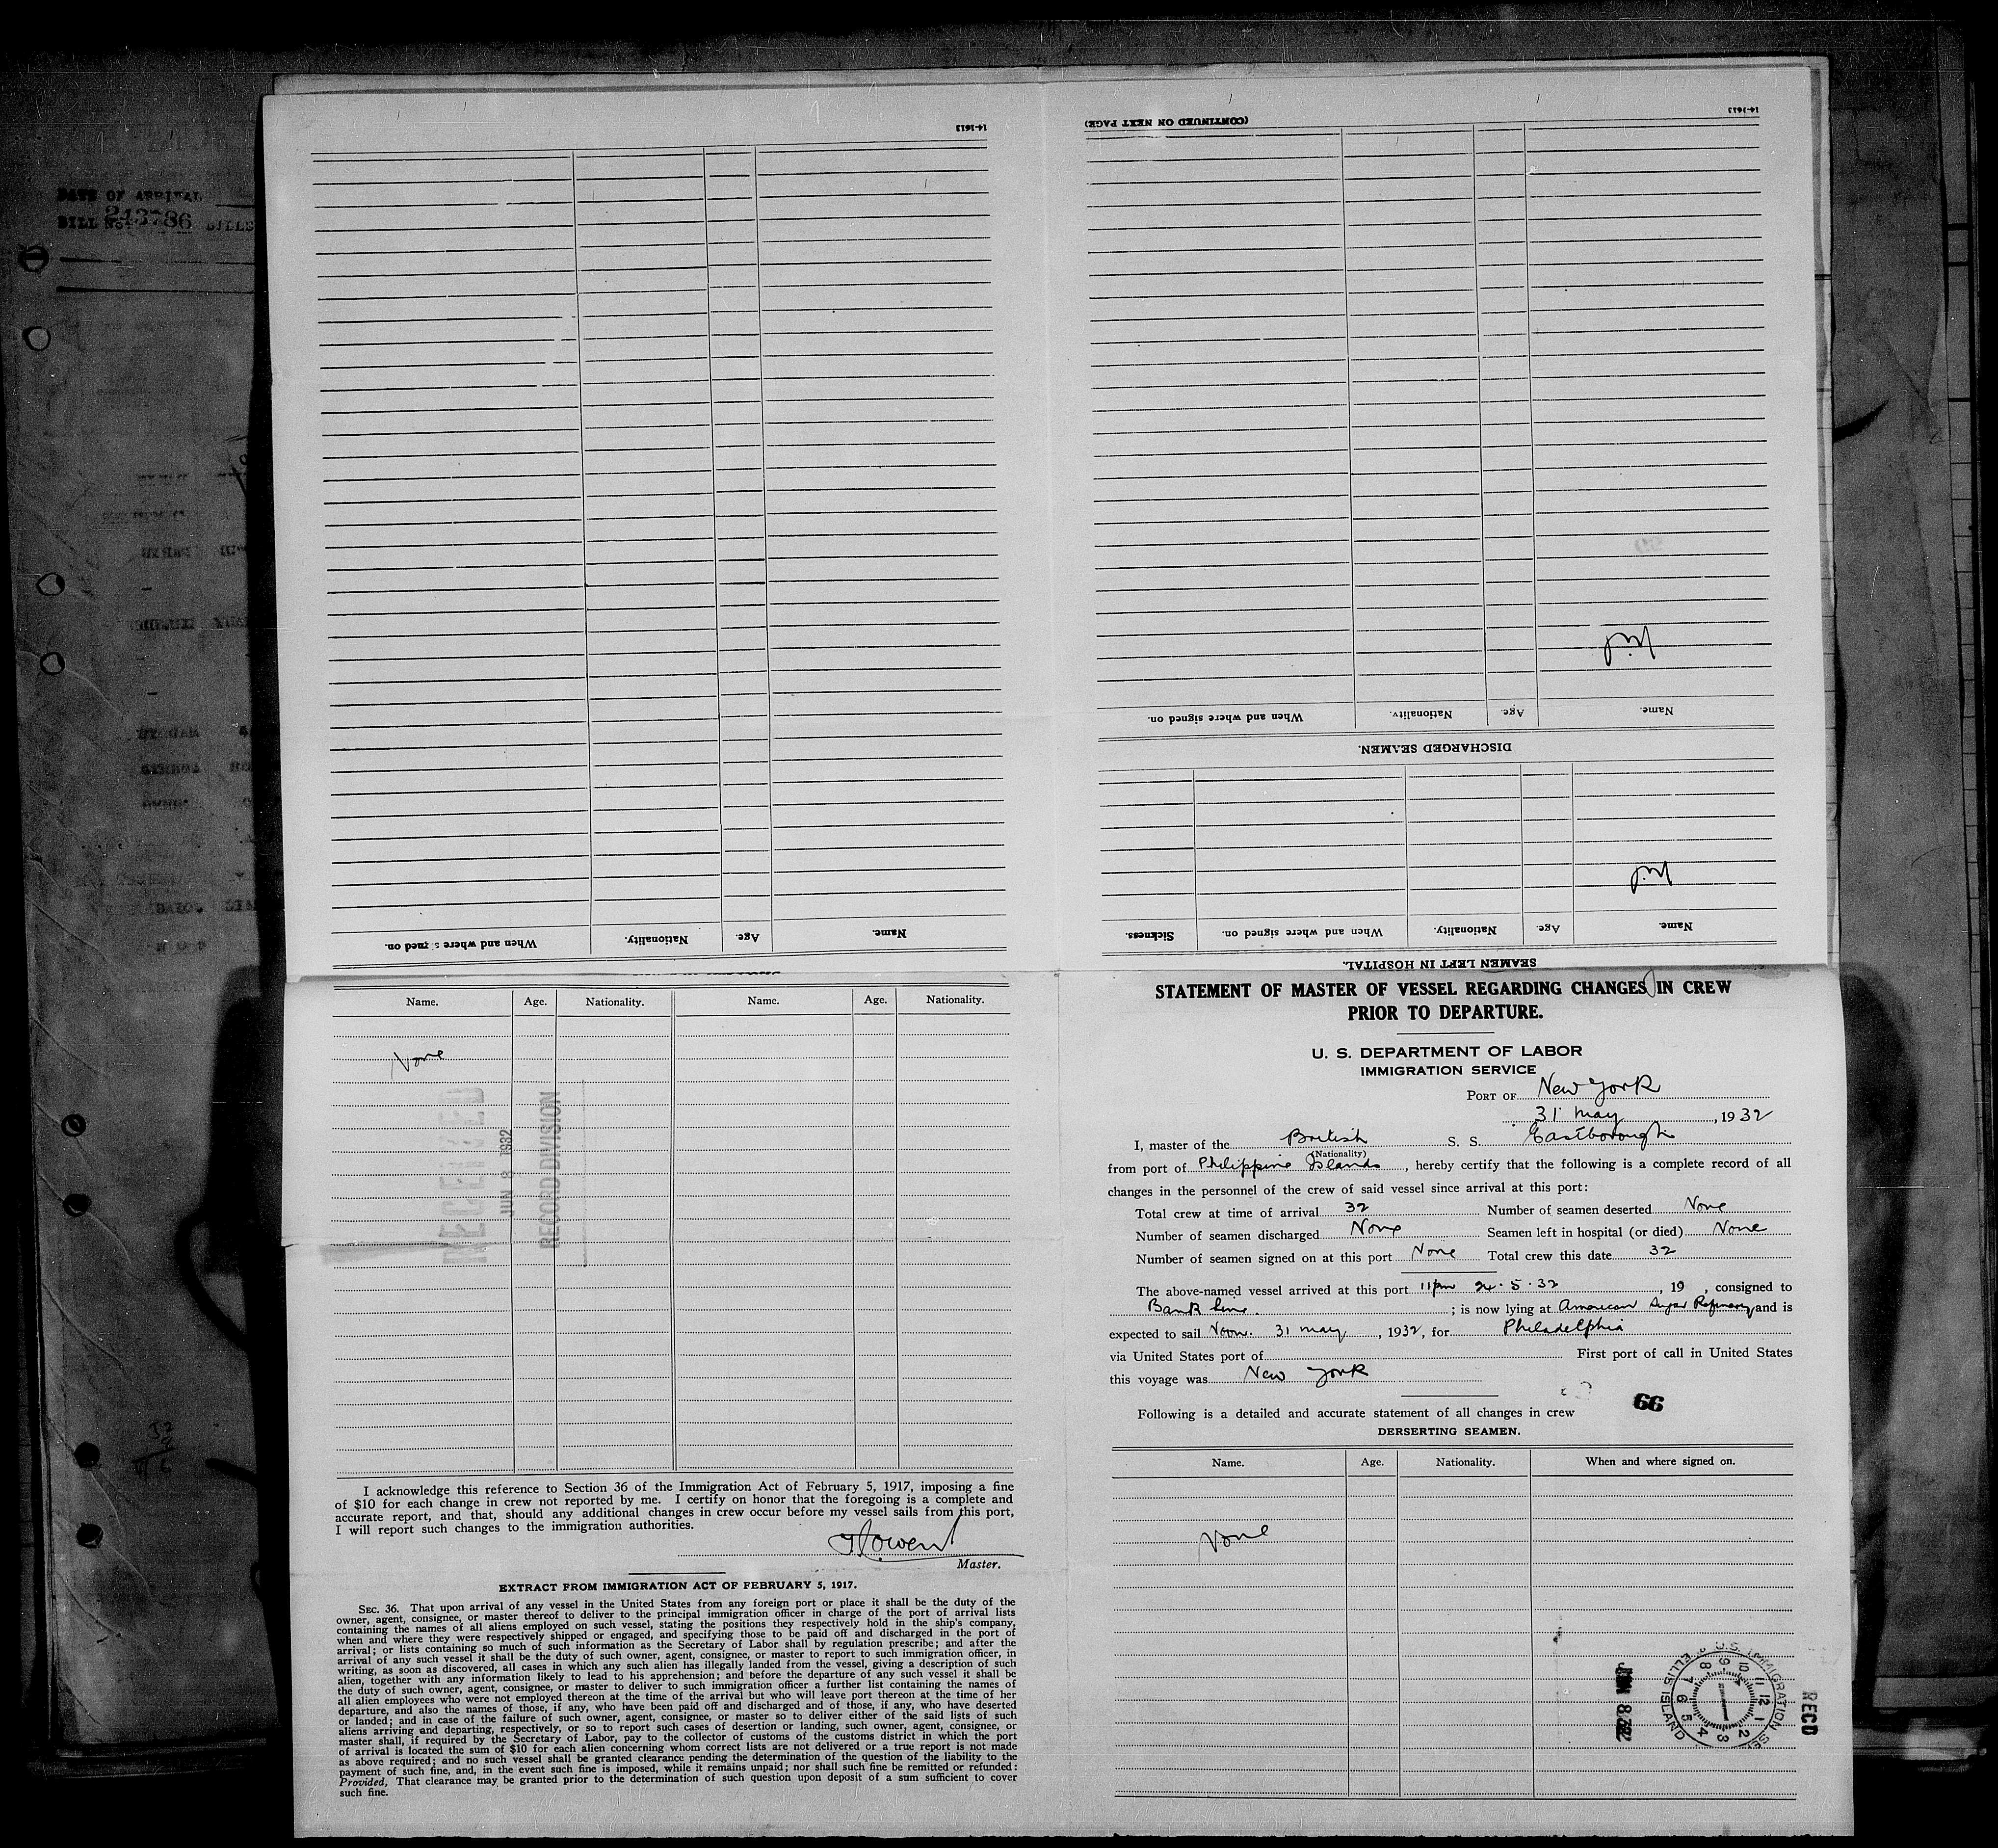 14-1613
When and where signed on.
Nationality.
Age.
Name.
(CONTINUED ON NEXT PAGE)
14-1613
Nil
When and where signed on.
Nationality.
Age.
Name.
DISCHARGED SEAMEN.
Nil
Sickness.
When and where signed on.
Nationality.
Age.
Name.
SEAMEN LEFT IN HOSPITAL.
Name. Age. Nationality. Name. Age. Nationality.
None
RECEIVED
JUN 8 1932
RECORD DIVISION
I acknowledge this reference to Section 36 of the Immigration Act of February 5, 1917, imposing a fine
of $10 for each change in crew not reported by me. I certify on honor that the foregoing is a complete and
accurate report, and that, should any additional changes in crew occur before my vessel sails from this port,
I will report such changes to the immigration authorities.
Owen
Master.
EXTRACT FROM IMMIGRATION ACT OF FEBRUARY 5, 1917.
SEC. 36. That upon arrival of any vessel in the United States from any foreign port or place it shall be the duty of the
owner, agent, consignee, or master thereof to deliver to the principal immigration officer in charge of the port of arrival lists
containing the names of all aliens employed on such vessel, stating the positions they respectively hold in the ship's company,
when and where they were respectively shipped or engaged, and specifying those to be paid off and discharged in the port of
arrival; or lists containing so much of such information as the Secretary of Labor shall by regulation prescribe; and after the
arrival of any such vessel it shall be the duty of such owner, agent, consignee, or master to report to such immigration officer, in
writing, as soon as discovered, all cases in which any such alien has illegally landed from the vessel, giving a description of such
alien, together with any information likely to lead to his apprehension; and before the departure of any such vessel it shall be
the duty of such owner, agent, consignee, or master to deliver to such immigration officer a further list containing the names of
all alien employees who were not employed thereon at the time of the arrival but who will leave port thereon at the time of her
departure, and also the names of those, if any, who have been paid off and discharged and of those, if any, who have deserted
or landed; and in case of the failure of such owner, agent, consignee, or master so to deliver either of the said lists of such
aliens arriving and departing, respectively, or so to report such cases of desertion or landing, such owner, agent, consignee, or
master shall, if required by the Secretary of Labor, pay to the collector of customs of the customs district in which the port
of arrival is located the sum of $10 for each alien concerning whom correct lists are not delivered or a true report is not made
as above required; and no such vessel shall be granted clearance pending the determination of the question of the liability to the
payment of such fine, and, in the event such fine is imposed, while it remains unpaid; nor shall such fine be remitted or refunded:
Provided, That clearance may be granted prior to the determination of such question upon deposit of a sum sufficient to cover
such fine.
STATEMENT OF MASTER OF VESSEL REGARDING CHANGES IN CREW
PRIOR TO DEPARTURE.
U. S. DEPARTMENT OF LABOR
IMMIGRATION SERVICE
PORT OF New York
31 May, 1932
I, master of the British S. S. Eastborough
(Nationality)
from port of Philippine Islands, hereby certify that the following is a complete record of all
changes in the personnel of the crew of said vessel since arrival at this port:
Total crew at time of arrival 32 Number of seamen deserted None
Number of seamen discharged None Seamen left in hospital (or died) None
Number of seamen signed on at this port None Total crew this date 32
The above-named vessel arrived at this port 11pm 24.5.32, 19 , consigned to
Bank Line. ; is now lying at American Sugar Refinery and is
expected to sail Noon. 31 May, 1932, for Philadelphia
via United States port of First port of call in United States
this voyage was New York
66
Following is a detailed and accurate statement of all changes in crew
DERSERTING SEAMEN.
Name. Age. Nationality. When and where signed on.
None
RECD
U.S. IMMIGRATION
ELLIS ISLAND
12 1 2 3 4 5 6 7 8 9 10 11
JUN 8 1932
DATE OF ARRIVAL
BILL No. 243786 BILLS